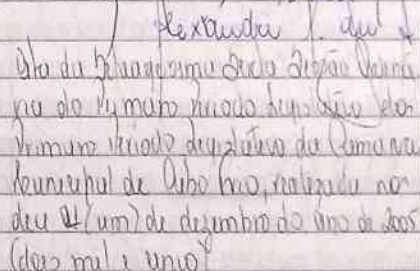 Alexandre
Ata da Quadragésima Sexta Sessão Ordiná
ria do Primeiro Período Legislativo do
Primeiro Período Legislativo da Câmara
Municipal de Cabo Frio, realizada no
dia 01 (um) de dezembro do ano de 2005
(dois mil e cinco)